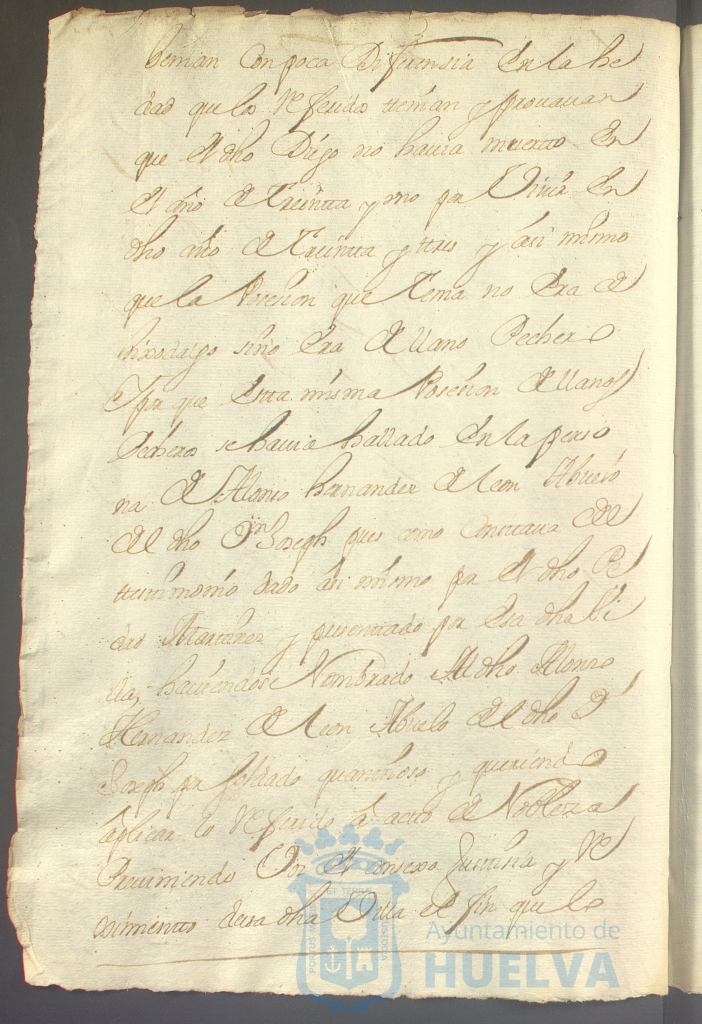 benian Con poca Diferensia En la he
dad que lo Referido tenian y provavan
que El dho Diego no havia muerto En
El año de Treinta y uno por Vivir En
dho año de Treinta y tres y asi mismo
que la Posesion que Tenia no Era de
hixodalgo sino Era de llano Pechero
Y por que Esta misma Posesion de llanos
Pecheros se havia hallado En la perso
na de Alonso hernandez de leon Abuelo
del dho Dn Joseph pues como Constava del
testimonio dado asi mismo por El dho Pe
dro Martinez y presentado por Esa dha Vi
lla, haviendose Nombrado Al dho Alonso
Hernandez de leon Abuelo del dho Dn
Joseph por soldado quantioso y queriendo
aplicar lo Referido a acto de Nobleza
Previniendo Por El consexo Justicia y Re
ximiento desa dha Villa el fin que le
Ayuntamiento de
HUELVA